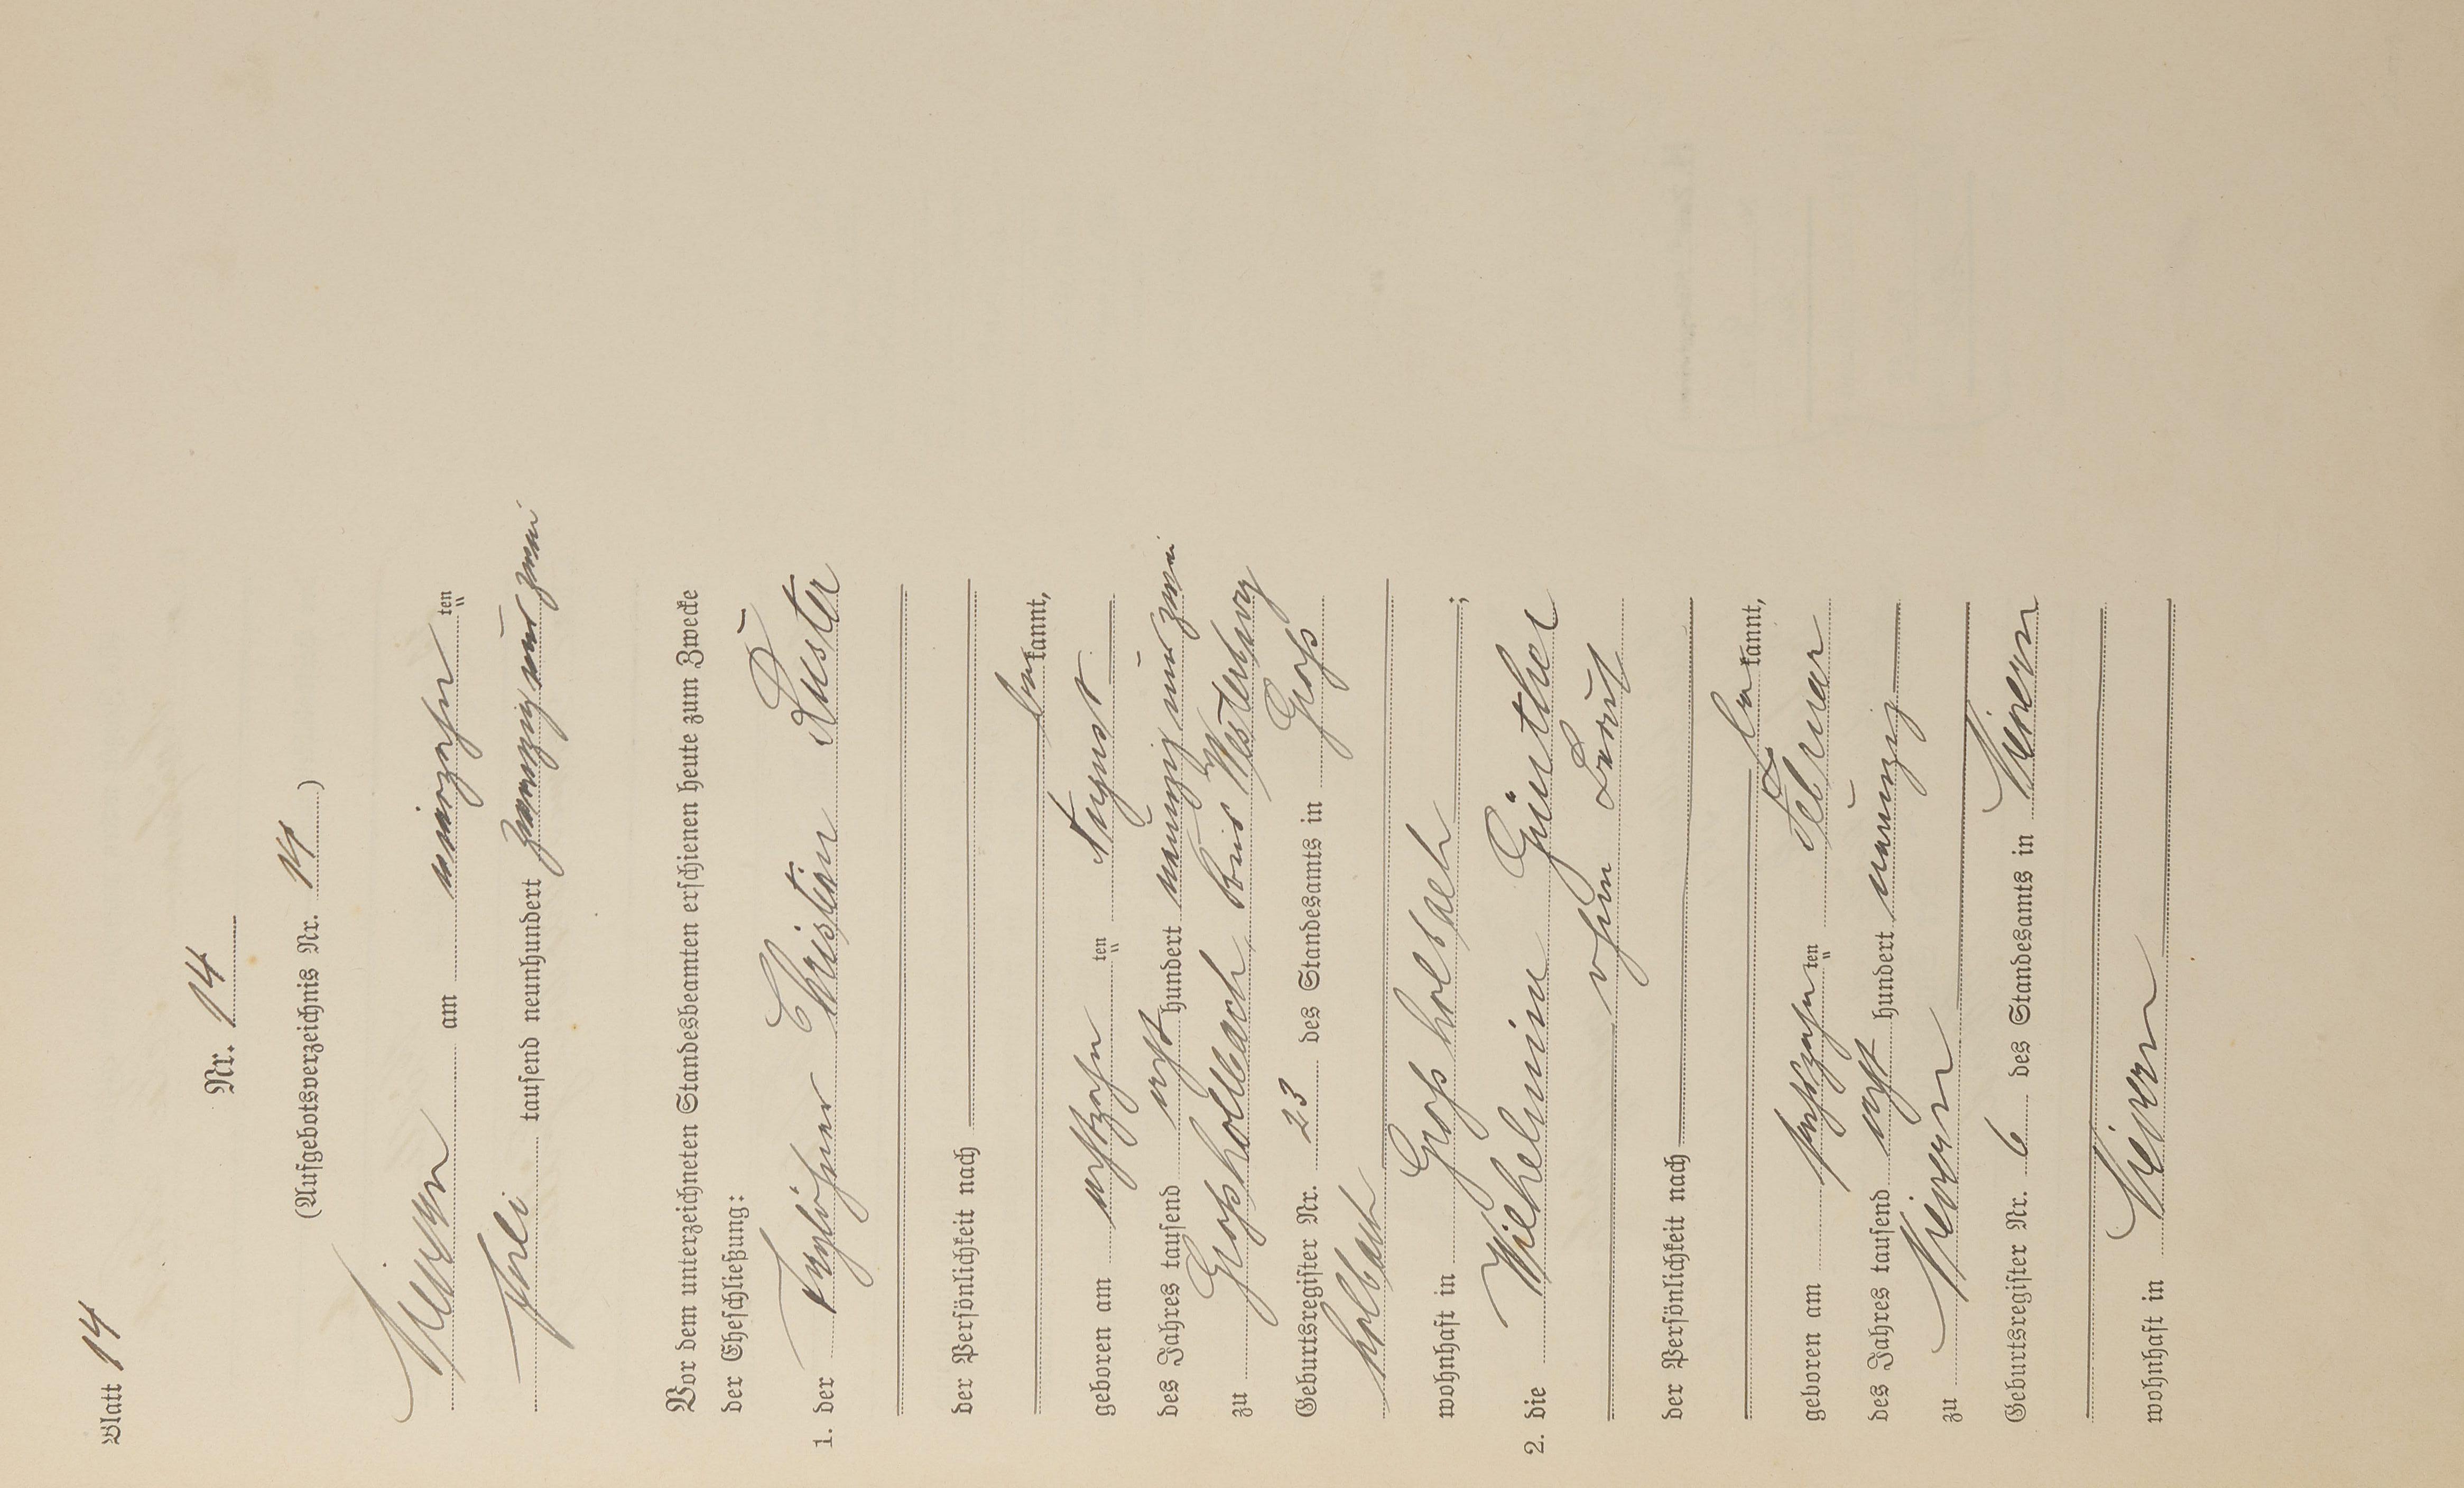 Blatt 14
Nr. 14
(Aufgebotsverzeichnis Nr. 14)
Nievern am vierzehnten
Juli tausend neunhundert zwanzig und zwei
Vor dem unterzeichneten Standesbeamten erschienen heute zum Zwecke
der Eheschließung:
1. der Taglöhner Christian Kuster
der Persönlichkeit nach
bekannt,
geboren am achtzehnten August
des Jahres tausend acht hundert neunzig und zwei
zu Großholbach Kreis Westerburg
Geburtsregister Nr. 23 des Standesamts in Groß
holbach
wohnhaft in Großholbach;
2. die Wilhelmine Günther
ohne Beruf
der Persönlichkeit nach
bekannt,
geboren am sechszehnten Februar
des Jahres tausend acht hundert neunzig
zu Nievern
Geburtsregister Nr. 6 des Standesamts in Nievern
wohnhaft in Nievern